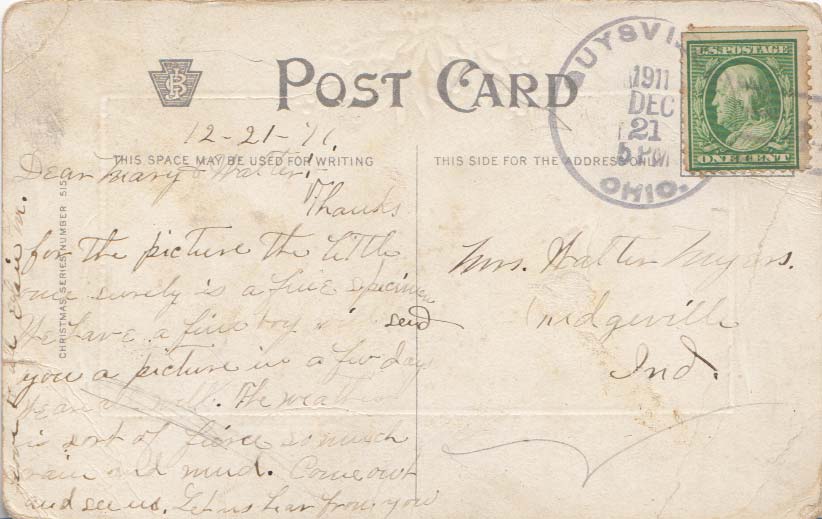 POST CARD
12-21-11
THIS SPACE MAY BE USED FOR WRITING
Dear Mary & Walter:
Thanks
for the picture the little
one surely is a fine specimen
We have a fine boy will send
you a picture in a few days
We are all well. The weather
is sort of fierce so much
rain and mud. Come out
and see us. Let us hear from you
CHRISTMAS SERIES NUMBER 515
THIS SIDE FOR THE ADDRESS ONLY
UYSVI
1911
DEC
21
5 PM
OHIO.
U.S. POSTAGE
ONE CENT
Mrs. Walter Myers.
Ridgeville
Ind.